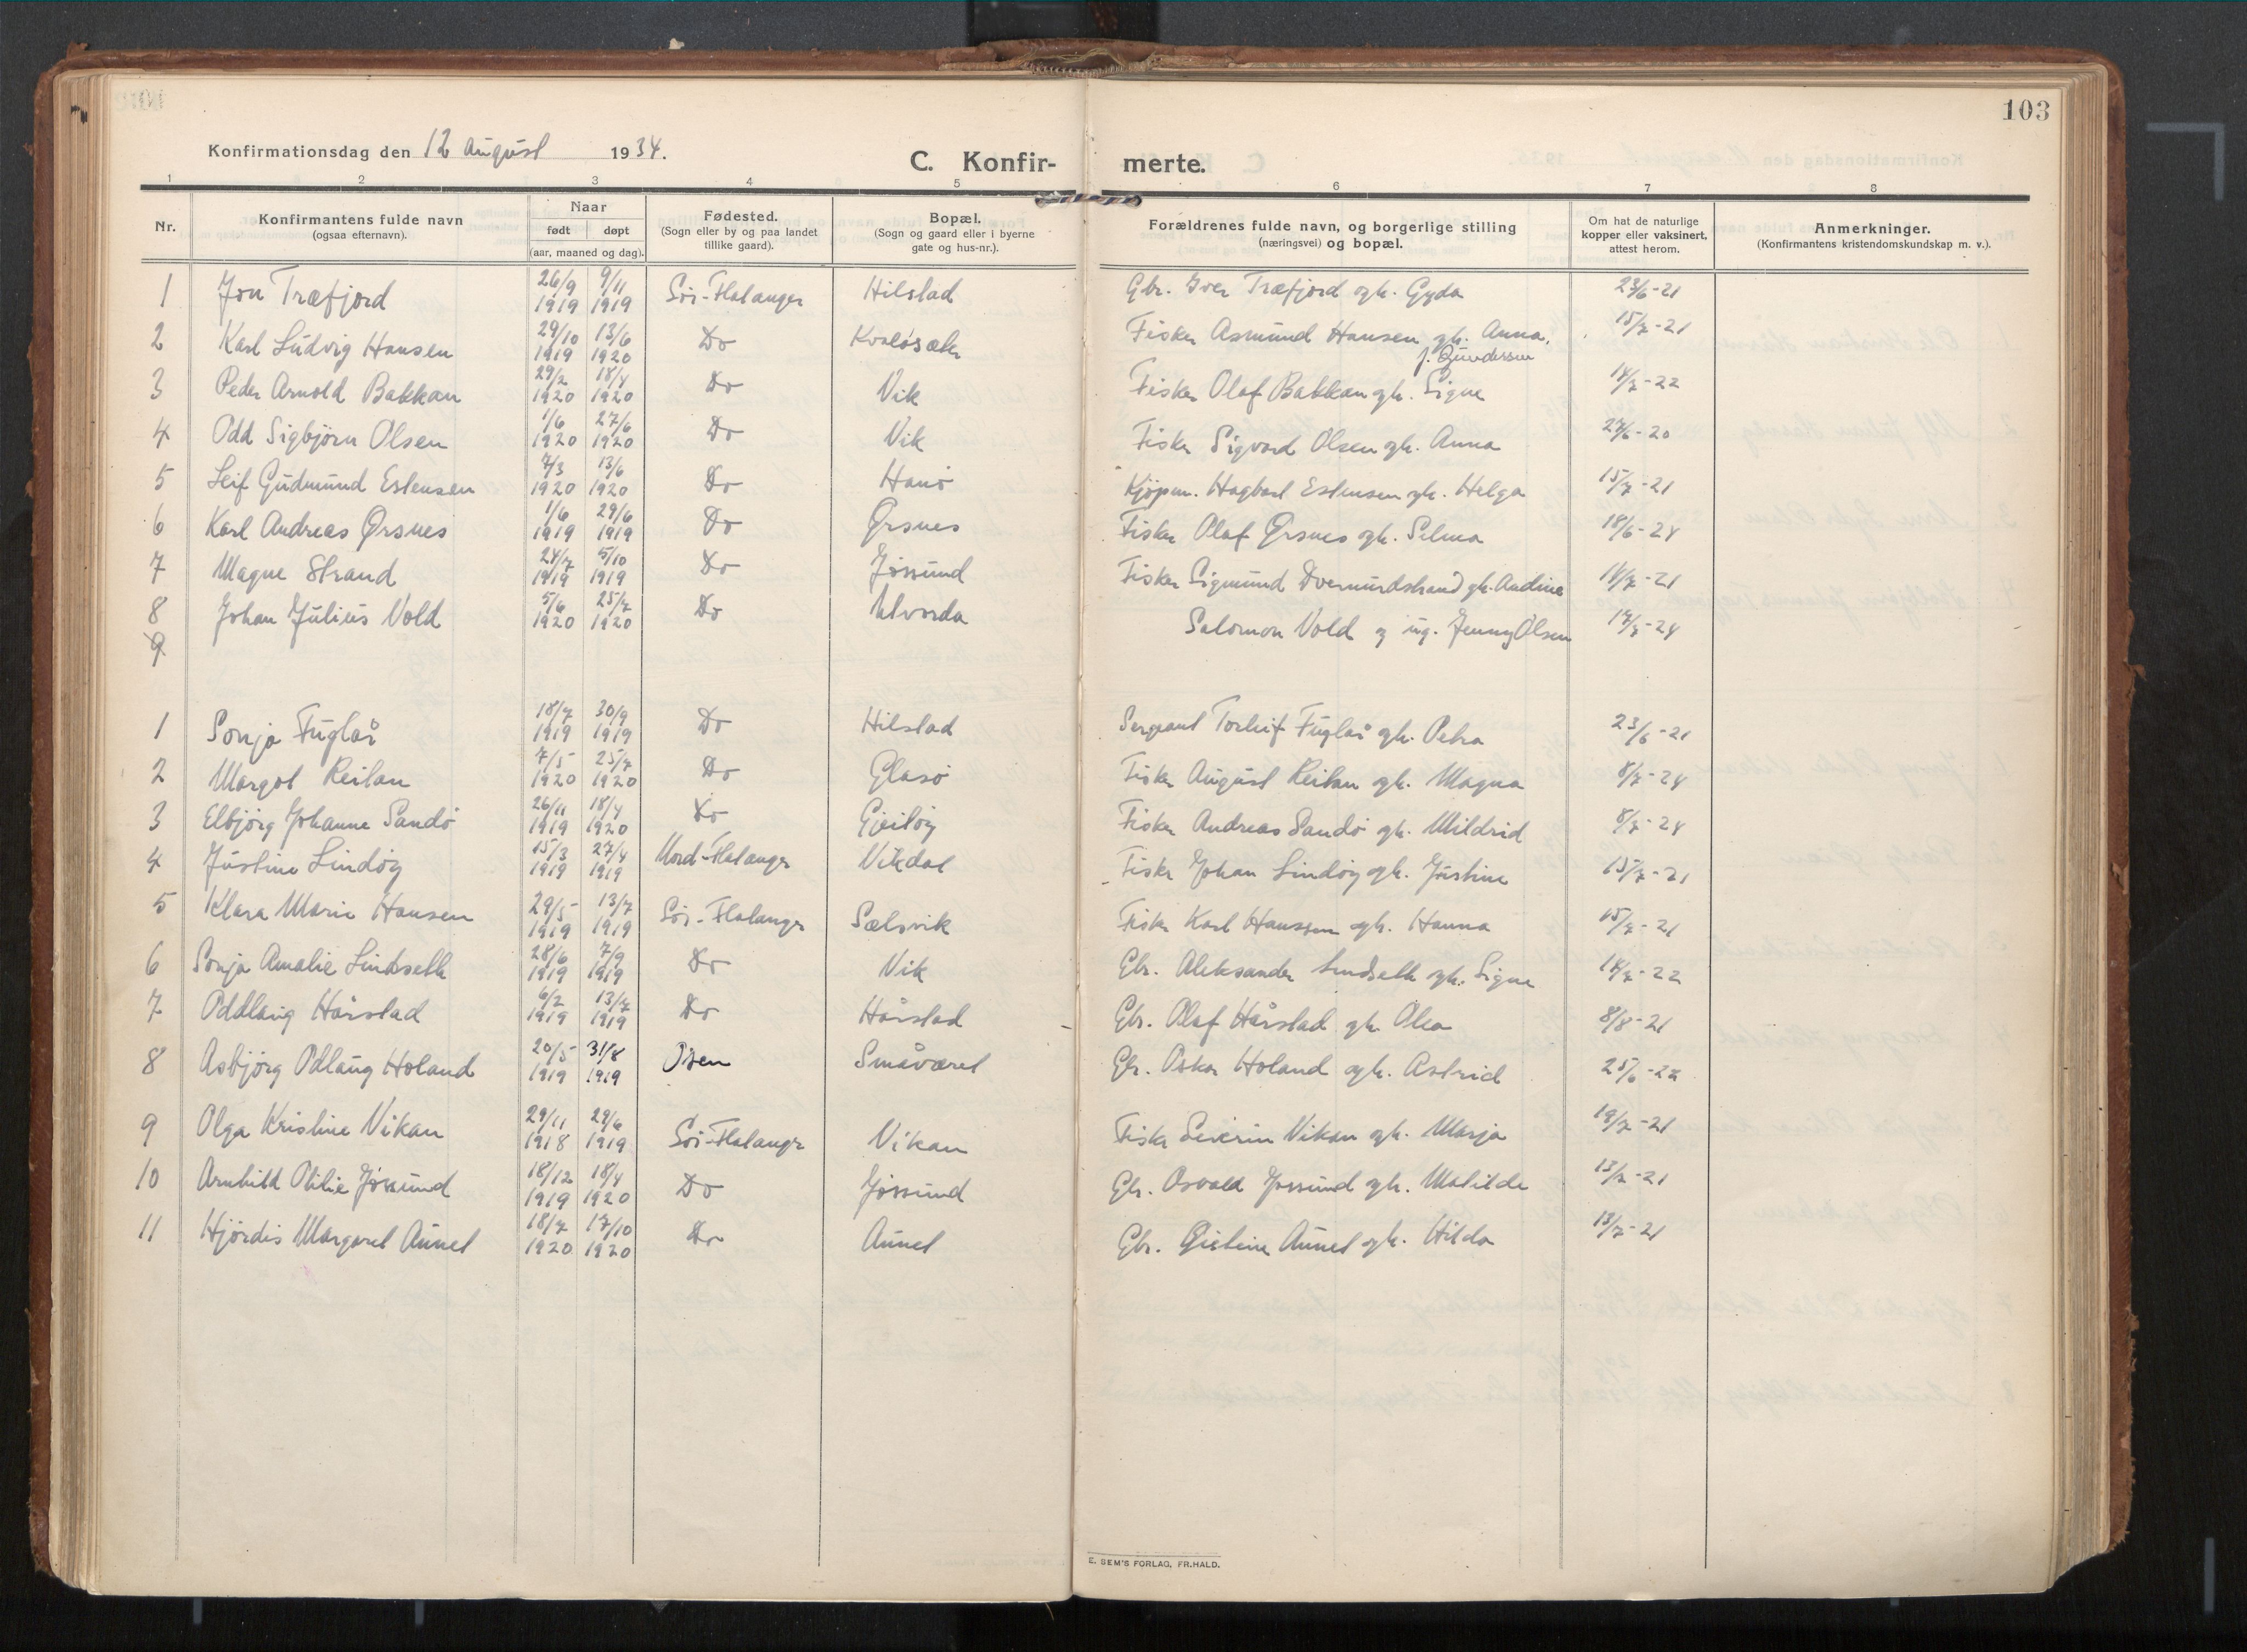 103
Konfirmationsdag den 12 august 1934.
C. Konfir-merte.
1 2 3 4 5 6 7 8
Nr. Konfirmantens fulde navn (ogsaa efternavn). Naar født døpt (aar, maaned og dag). Fødested. (Sogn eller by og paa landet tillike gaard). Bopæl. (Sogn og gaard eller i byerne gate og hus-nr.). Forældrenes fulde navn, og borgerlige stilling (næringsvei) og bopæl. Om hat de naturlige kopper eller vaksinert, attest herom. Anmerkninger. (Konfirmantens kristendomskundskap m. v.).
1 Jon Træfjord 26/9 1919 9/11 1919 Sör-Flatanger Hilstad Gbr. Iver Træfjord og h. Gyda 23/6-21
2 Karl Ludvig Hansen 29/10 1919 13/6 1920 Do Kvaløsæter Fisker Asmund Hansen og h. Anna,
f. Gundersen 15/7-21
3 Peder Arnold Bakkan 29/2 1920 18/4 1920 Do Vik Fisker Olaf Bakkan og h. Signe 14/7-22
4 Odd Sigbjörn Olsen 1/6 1920 27/6 1920 Do Vik Fisker Sigvard Olsen og h. Anna
5 Leif Gudmund Estensen 7/3 1920 13/6 1920 Do Hanö Kjöpm. Hagbart Estensen og h. Helga 15/7-21
6 Karl Andreas Ørsnes 1/6 1919 29/6 1919 Do Ørsnes Fisker Olaf Ørsnes og h. Selma 18/6-24
7 Magne Strand 24/7 1919 5/10 1919 Do Jössund Fisker Sigmund Dvernurdstrand og h. Andine 14/7-21
8 Johan Julius Vold 5/6 1920 25/7 1920 Do Utvorda Salomon Vold og ug. Jenny Olsen 17/7-24
9
1 Sonja Fuglår 18/7 1919 30/9 1919 Do Hilstad Sergeant Torleif Fuglår og h. Petra 23/6-21
2 Margot Reitan 7/5 1920 25/7 1920 Do Glasö Fisker August Reitan og h. Magna 8/7-24
3 Elbjörg Johanne Sandö 26/11 1919 18/4 1920 Do Gjeilöy Fisker Andreas Sandö og h. Mildrid 8/7-24
4 Justine Lindöy 15/3 1919 27/4 1919 Nord-Flatanger Vikdal Fisker Johan Lindöy og h. Justine 15/7-21
5 Klara Marie Hansen 29/5 1919 13/7 1919 Sör-Flatanger Sælsvik Fisker Karl Hanssen og h. Hanna 15/7-21
6 Sonja Amalie Lindseth 28/6 1919 7/9 1919 Do Vik Gbr. Aleksander Lindseth og h. Signe 14/7-22
7 Oddlaug Hårstad 6/2 1919 13/7 1919 Do Hårstad Gbr. Olaf Hårstad og h. Olea 8/8-21
8 Asbjörg Odlaug Holand 20/5 1919 31/8 1919 Osen Småværet Gbr. Oskar Holand og h. Astrid
9 Olga Kristine Vikan 29/11 1918 29/6 1919 Sör-Flatanger Vikan Fisker Severin Vikan og h. Marja 19/7-21
10 Arnhild Otilie Jössund 18/12 1919 18/4 1920 Do Jössund Gbr. Osvald Jössund og h. Matilde 13/7-21
11 Hjördis Margaret Aunet 18/7 1920 17/10 1920 Do Aunet Gbr. Aunet og h. Hilda 13/7-21
E. SEM'S FORLAG, FR.HALD.